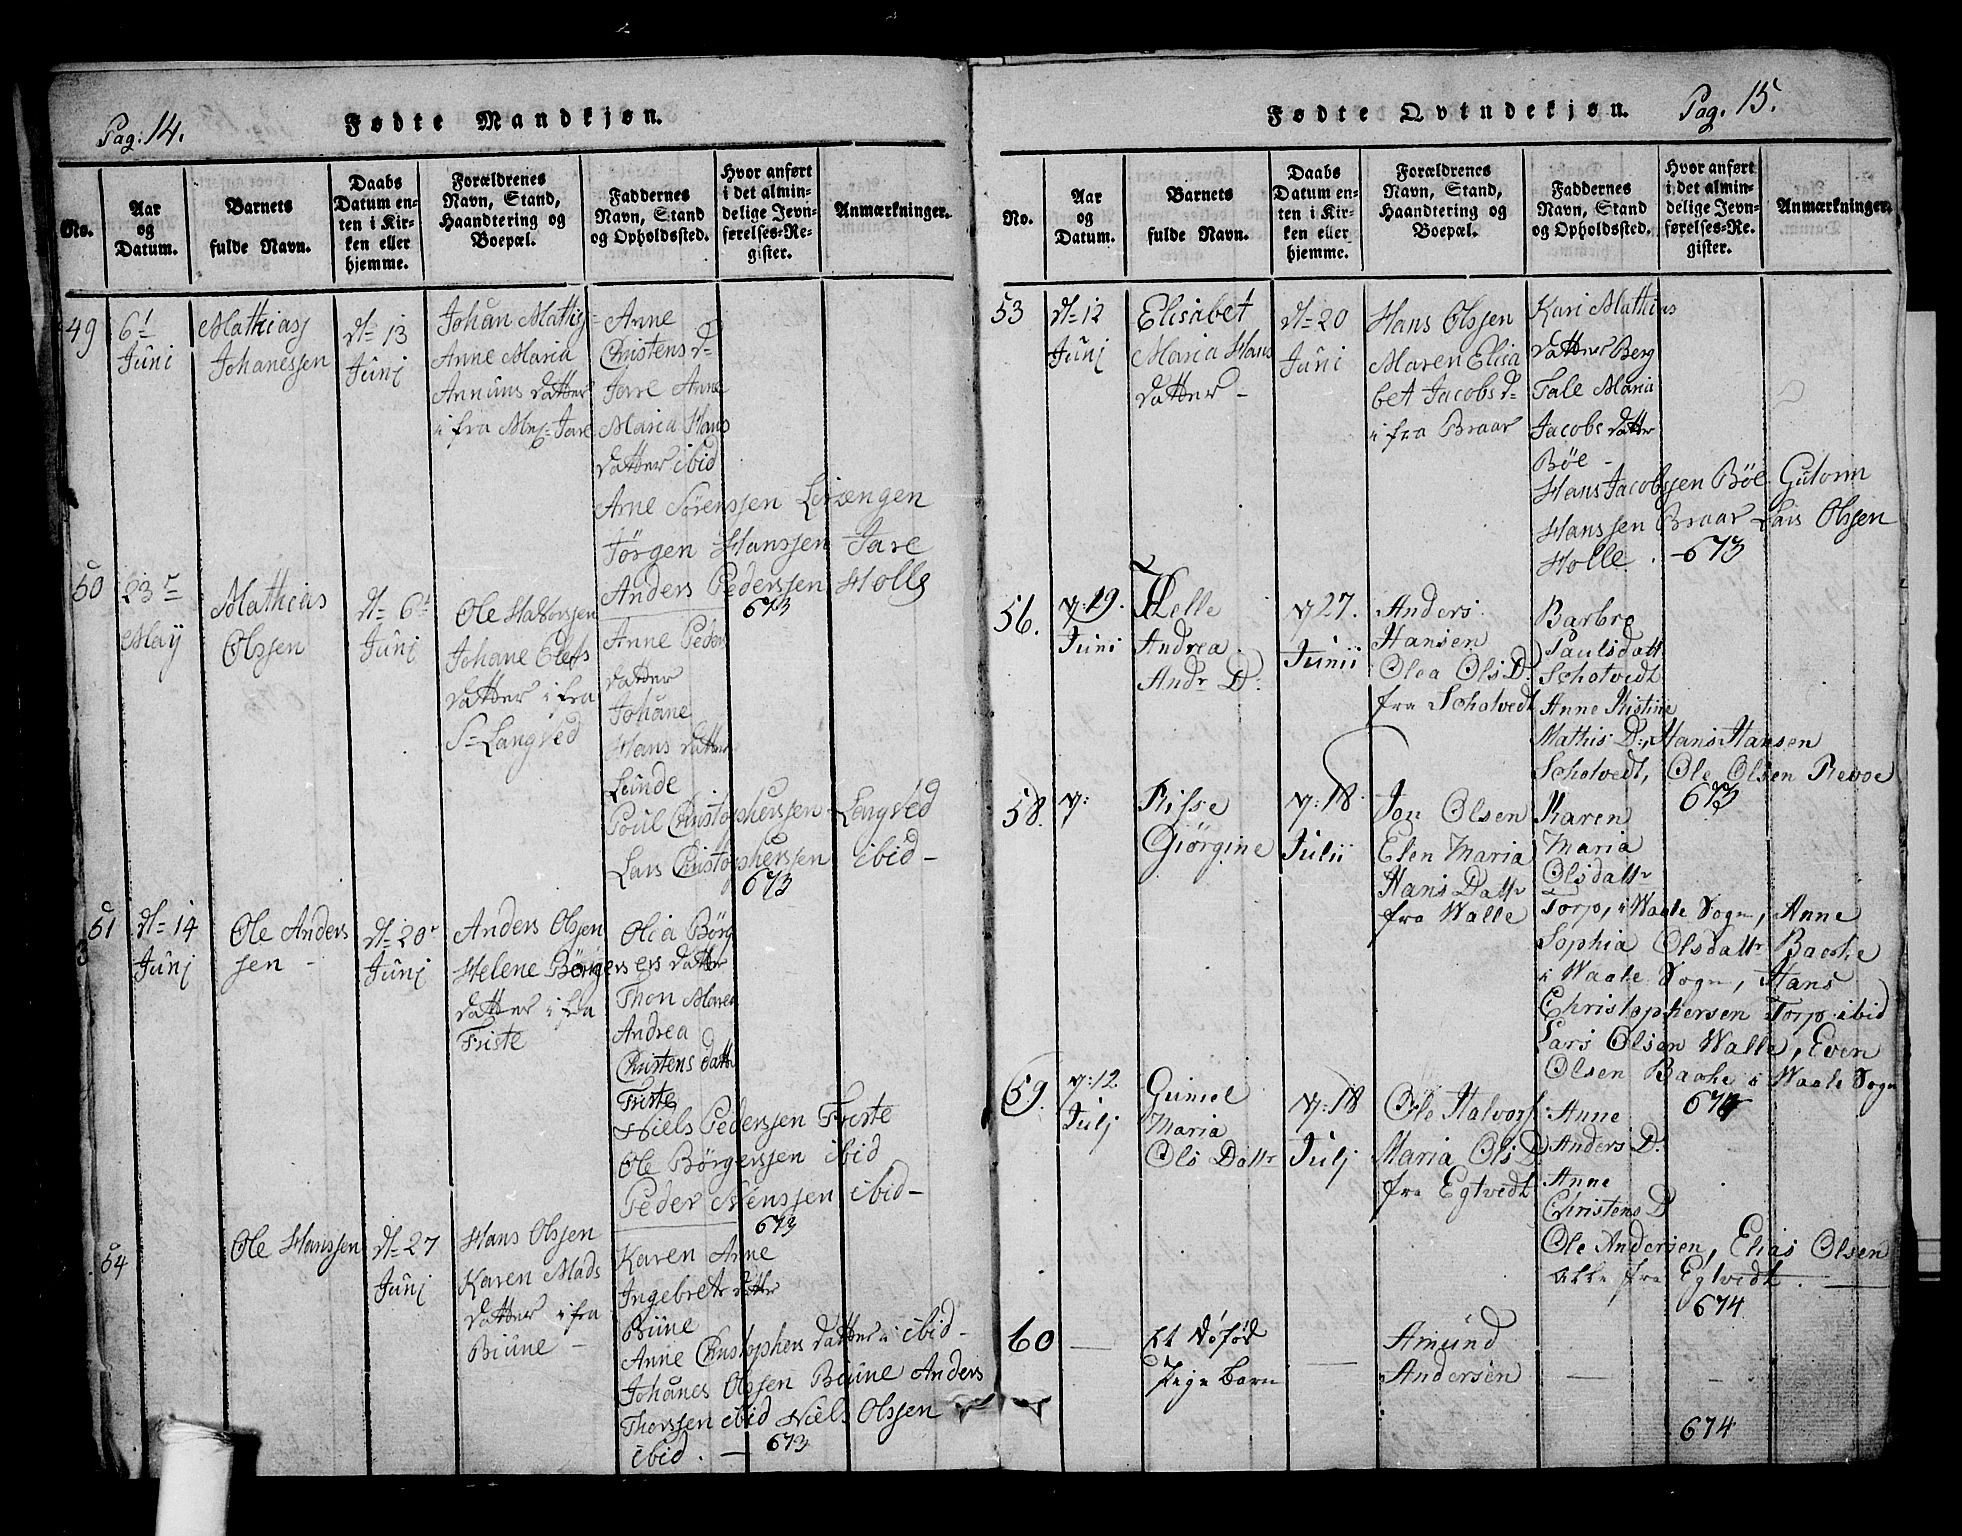 Pag: 14.
Fødte Mandkjøn.
No.
Aar
og
Datum.
Barnets
fulde Navn.
Daabs
Datum en-
ten i Kir-
ken eller
hjemme.
Forældrenes
Navn, Stand,
Haandtering og
Boepæl.
Faddernes
Navn, Stand
og Opholdssted.
Hvor anført
i det almin-
delige Jevn-
førelses-Re-
gister.
Anmærkninger.
49
6t
Juni
Mathias
Johanessen
d= 13
Junj
Johan Mathis
Anne Maria
datter
i fra Jare
Anne
Christens d=
Jare Anne
Maria Hans
datter ibid
Arne Sörenssen
Jörgen Hanssen Jare
Anders Pederssen Holle
673
50
23
May
Mathias
Olssen
d= 6t
Junj
Ole Halvorssen
Johane Olefs
datter i fra
S= Langved
Anne Peders
datter
Johane
Hans datter
Lunde
Poul Christopherssen Langved
Lars Christopherssen ibid –
673
51
d= 14
Junj
Ole Anders
sen –
d= 20
Junj
Anders Olssen
Helene Börgers
datter i fra
Friste
Olia Börg
ers datter
Thon Maren
Andrea
Christens datter
Friste
Niels Pederssen Friste
Ole Börgerssen ibid
Peder ibid –
673
54
Ole Hanssen
d= 27
Junj
Hans Olssen
Karen Mads
datter i fra
Biüne –
Karen Anne
Ingebrets datter
Biüne
Anne Christophers datter ibid –
Johanes Olssen Biüne Anders
Thorssen ibid Niels Olssen
ibid. –
673
Pag. 15.
Fødte Qvindekjøn.
No.
Aar
og
Datum.
Barnets
fulde Navn.
Daabs
Datum en-
ten i Kir-
ken eller
hjemme.
Forældrenes
Navn, Stand,
Haandtering og
Boepæl.
Faddernes
Navn, Stand
og Opholdssted.
Hvor anført
i det almin-
delige Jevn-
førelses-Re-
gister.
Anmærkninger.
53
d= 12
Junj
Elisabet
Maria Hans
datter –
d= 20
Juni
Hans Olssen
Maren Elisa
bet Jacobs d=
i fra Braar
Kari Mathias
datter Berg
Tale Maria
Jacobs datter
Böe –
Hans Jacobssen Böe Gutorm
Hanssen Braar Lars Olssen
Holle. – 673
56.
19.
Juni
Helle
Andrea
Andr D:
27.
Junii
Anders
Hansen
Olea Ols D.
fra Scholvedt
Barbro
Paulsdatt
Scholvedt
Anne Kistine
Mathis D:, Hans Hansen
Scholvedt, Ole Olsen Revoe
673
58.
Risse
Giörgine
18.
Julii
Jon Olsen
Elen Maria
Hans Datr
fra Walle
Karen
Maria
Olsdattr
Torp, i Waale Sogn, Anne
Sophia Olsdattr Bache
i Waale Sogn, Hans
Christophersen Torp ibid
Lars Olsen Walle, Even
Olsen Bache i Waale Sogn
674
59.
12.
Julj
Guniel
Maria
Ols Dattr
18
Julj
Ole Halvors:
Maria Ols D.
fra Egtvedt
Anne
Anders D.
Anne
Christens D
Ole Andersen, Elias Olsen
alle fra Egtvedt.
674
60
Et döfød
Pige barn
Amund
Andersen
674